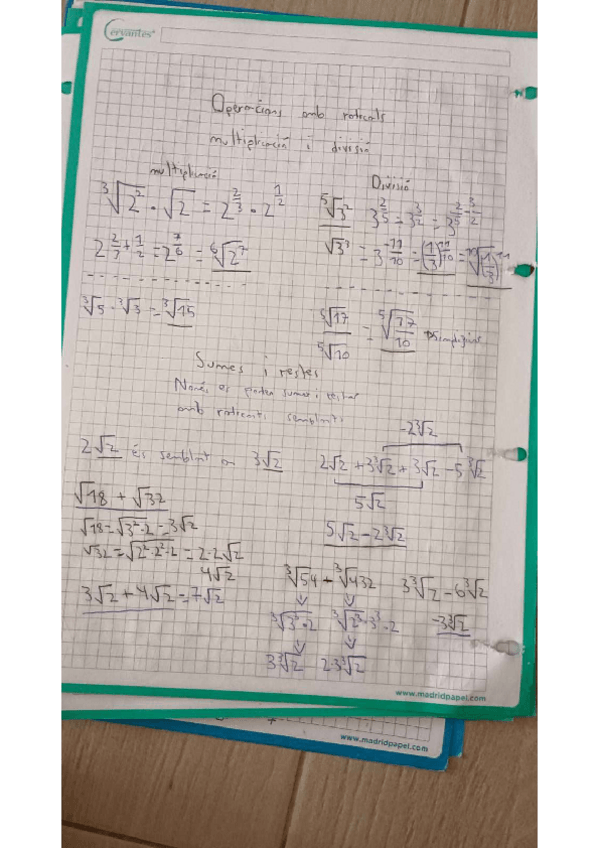 Cervantes
Operacions amb radicals
multiplicació i divisió
multiplicació
∛2² · √2 = 2^(2/3) · 2^(1/2)
2^(2/3 + 1/2) = 2^(7/6) = ⁶√2⁷
∛5 · ∛3 = ∛15
Divisió
⁵√3² / √3³ 3^(2/5) = 3^(3/2) = 3^(2/5 - 3/2)
= 3^(-11/10) = (1/3)^(11/10) = ¹⁰√(1/3)^11
⁵√17 / ⁵√10 = ⁵√(17/10)
Sumes i restes
Només es poden sumar i restar
amb radicals semblants
2√2 és semblant a 3√2
√18 + √32
√18 = √3²·2 = 3√2
√32 = √2²·2²·2 = 2·2√2
4√2
3√2 + 4√2 = 7√2
-2∛2
2√2 + 3∛2 + 3√2 - 5∛2
5√2
5√2 - 2∛2
∛54 - ∛432 3∛2 - 6∛2
∛3³·2 ∛2³·3³·2 -3∛2
3∛2 2·3∛2
www.madridpapel.com
www.madridpapel.com